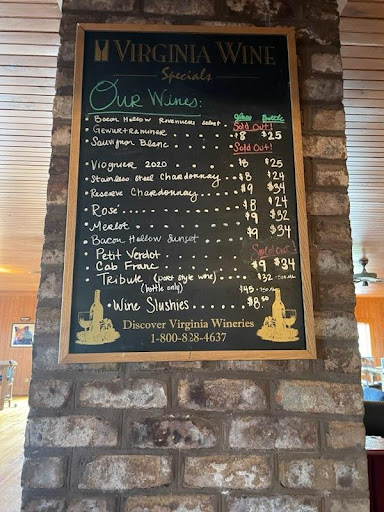 VIRGINIA WINE
Specials
Our Wines:
glass Bottle
• Bacon Hollow Revenuers select Sold Out!
• Gewurztraminer $8 $25
• Sauvignon Blanc Sold Out!
• Viognier 2020 $8 $25
• Stainless Steel Chardonnay $8 $24
• Reserve Chardonnay $9 $34
• Rosé $8 $24
• Merlot $9 $32
• Bacon Hollow Sunset $9 $34
• Petit Verdot Sold out
• Cab Franc $9 $34
• Tribute (port style wine) $32
(bottle only) $45
• Wine Slushies $8.50
Discover Virginia Wineries
1-800-828-4637